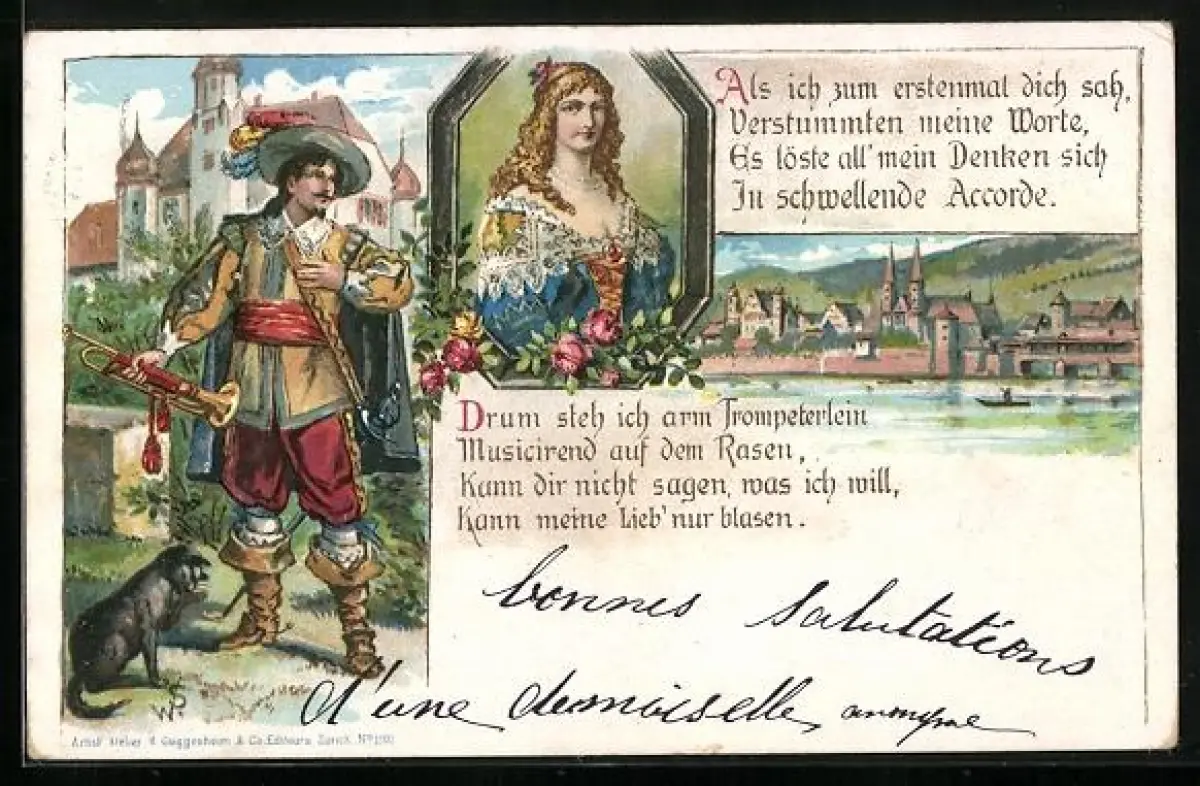 Als ich zum erstenmal dich sah,
Verstummten meine Worte,
Es löste all' mein Denken sich
In schwellende Accorde.
Drum steh ich arm Trompeterlein
Musicirend auf dem Rasen,
Kann dir nicht sagen, was ich will,
Kann meine Lieb' nur blasen.
bonnes salutations
d'une demoiselle anonyme
WS
Guggenheim & Co. Editeurs Zürich. Nº